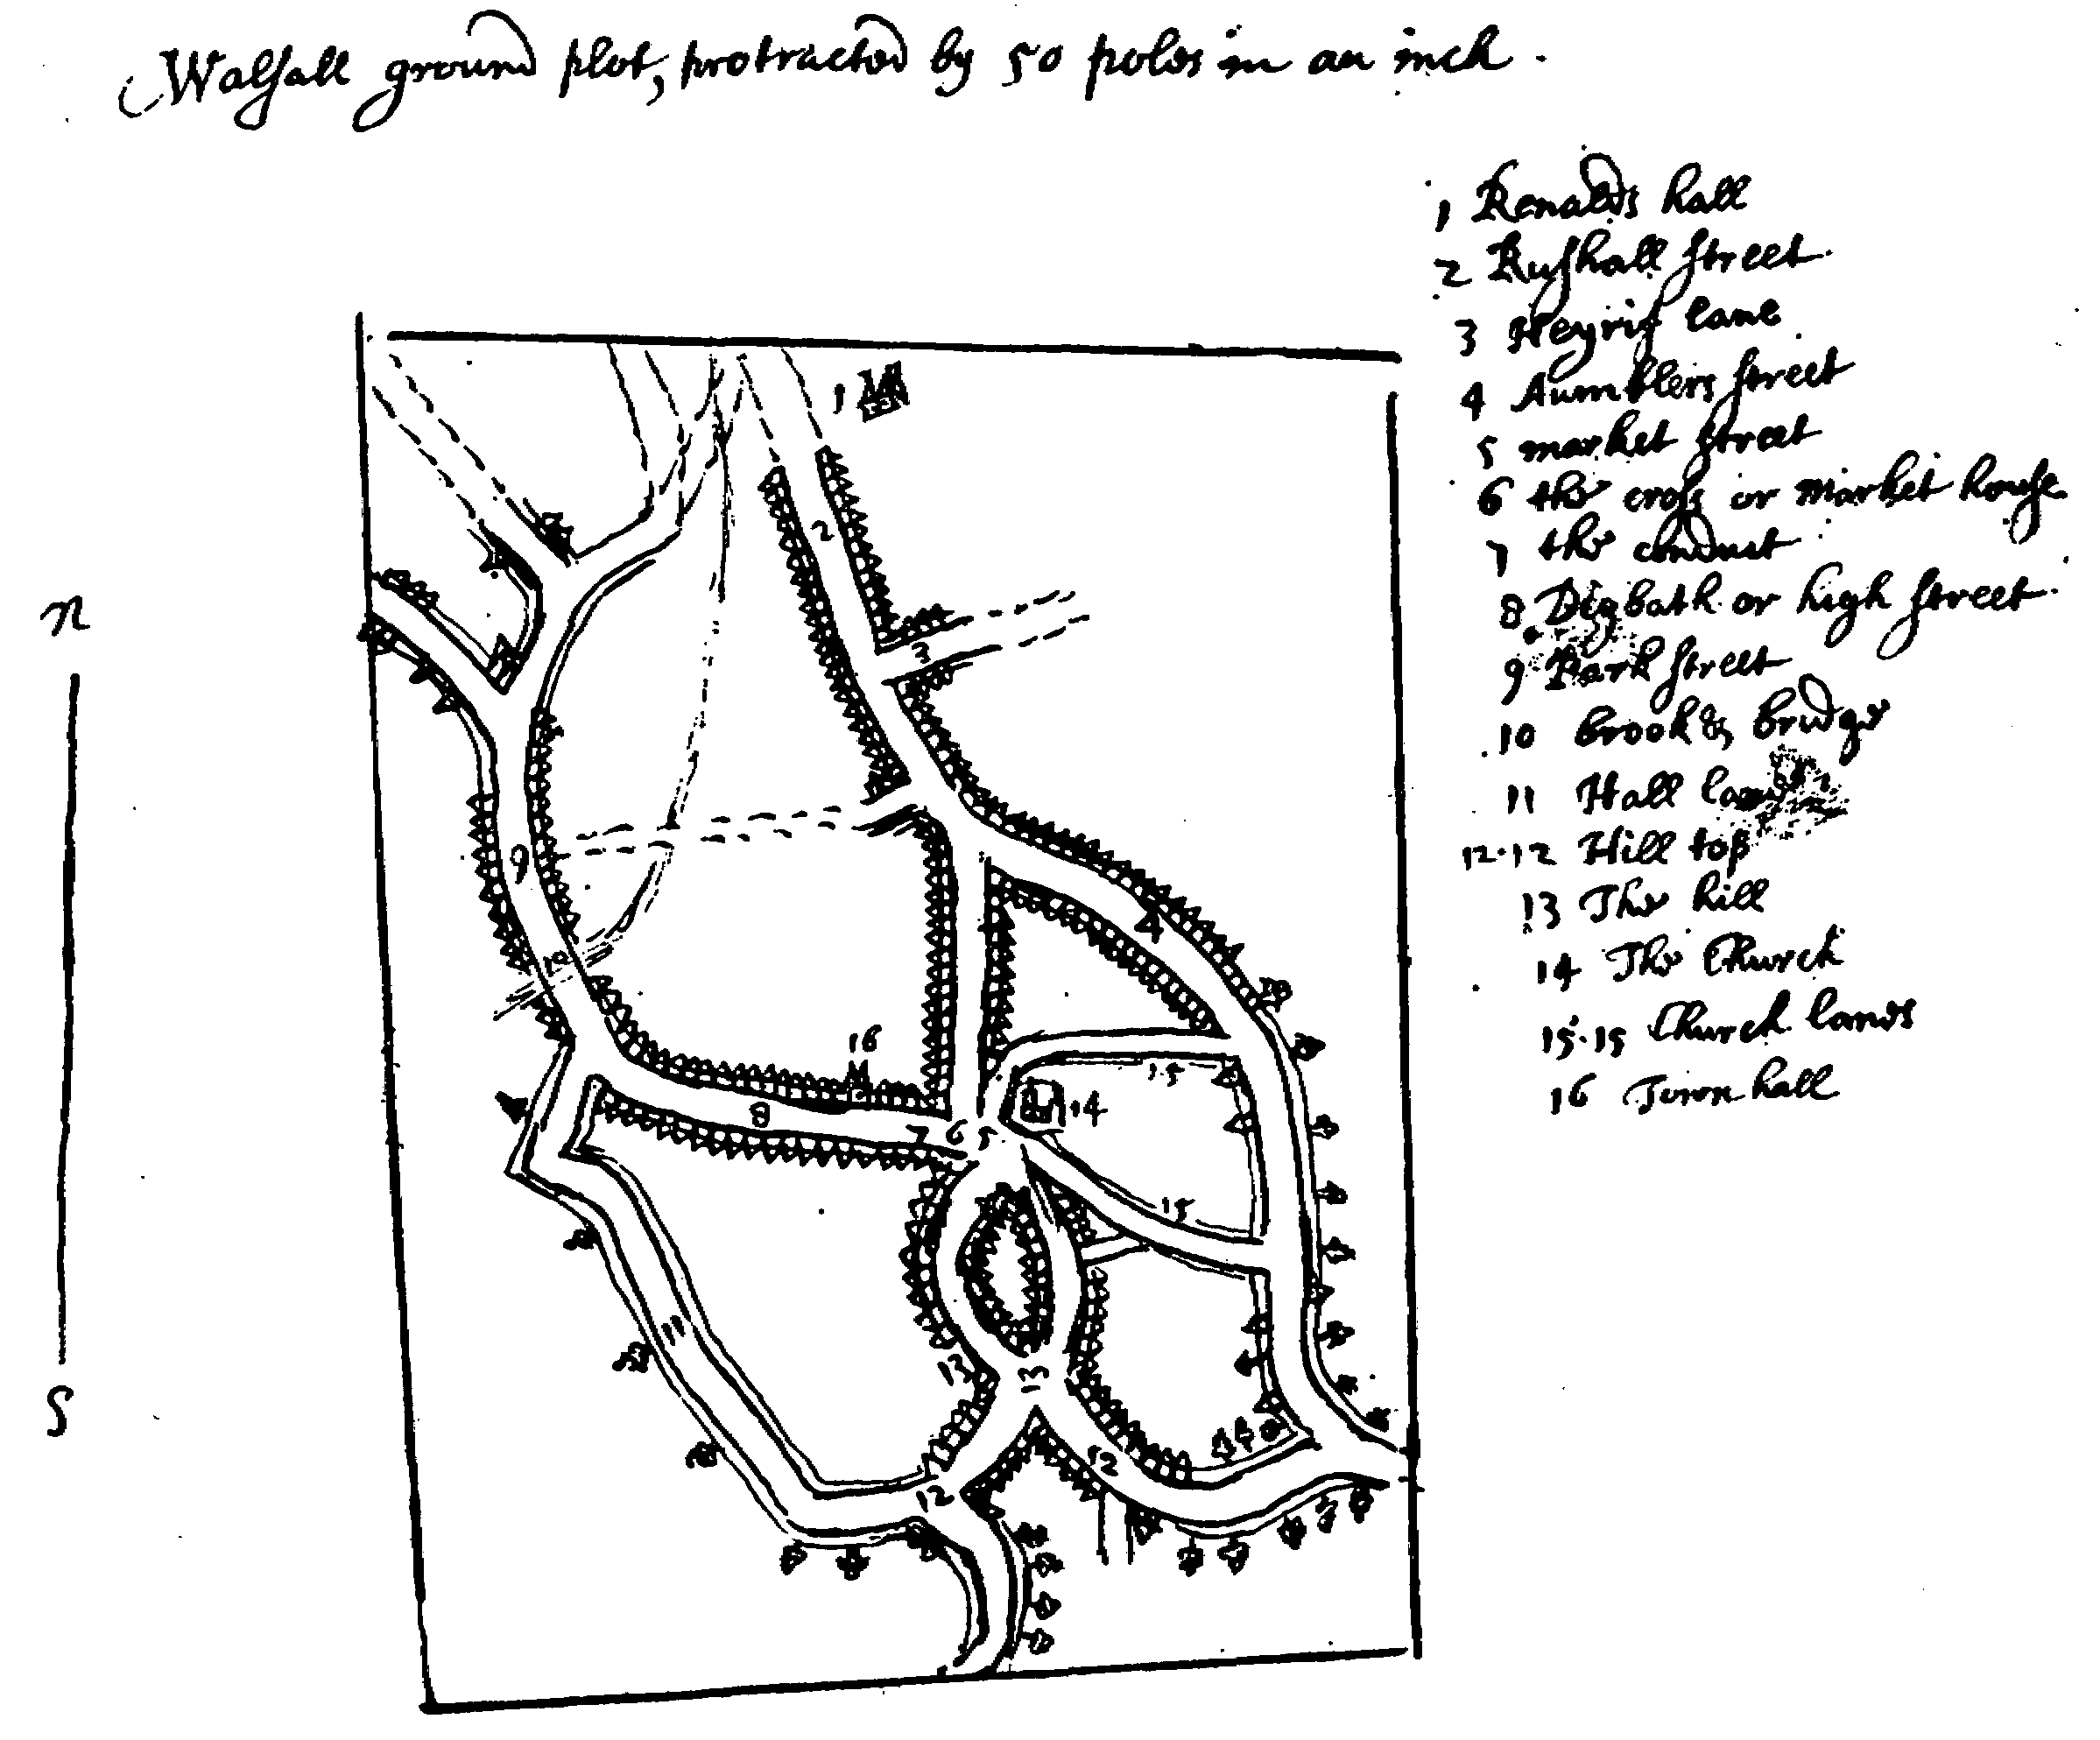 Walsall ground plot, protracted by 50 poles in an inch.
1 Renalds hall
2 Rushall street
3 lane
4 Aumblers street
5 market street
6 the cross or market house
7 the conduit
8 Digbath or high street
9 Park street
10 brook & bridge
11 Hall lane
12.12 Hill top
13 The hill
14 The Church
15.15 Church lands
16 Town hall
n
S
1
2
3
4
9
10
16
15
14
8
7 6 5
15
11
13
13
12
12